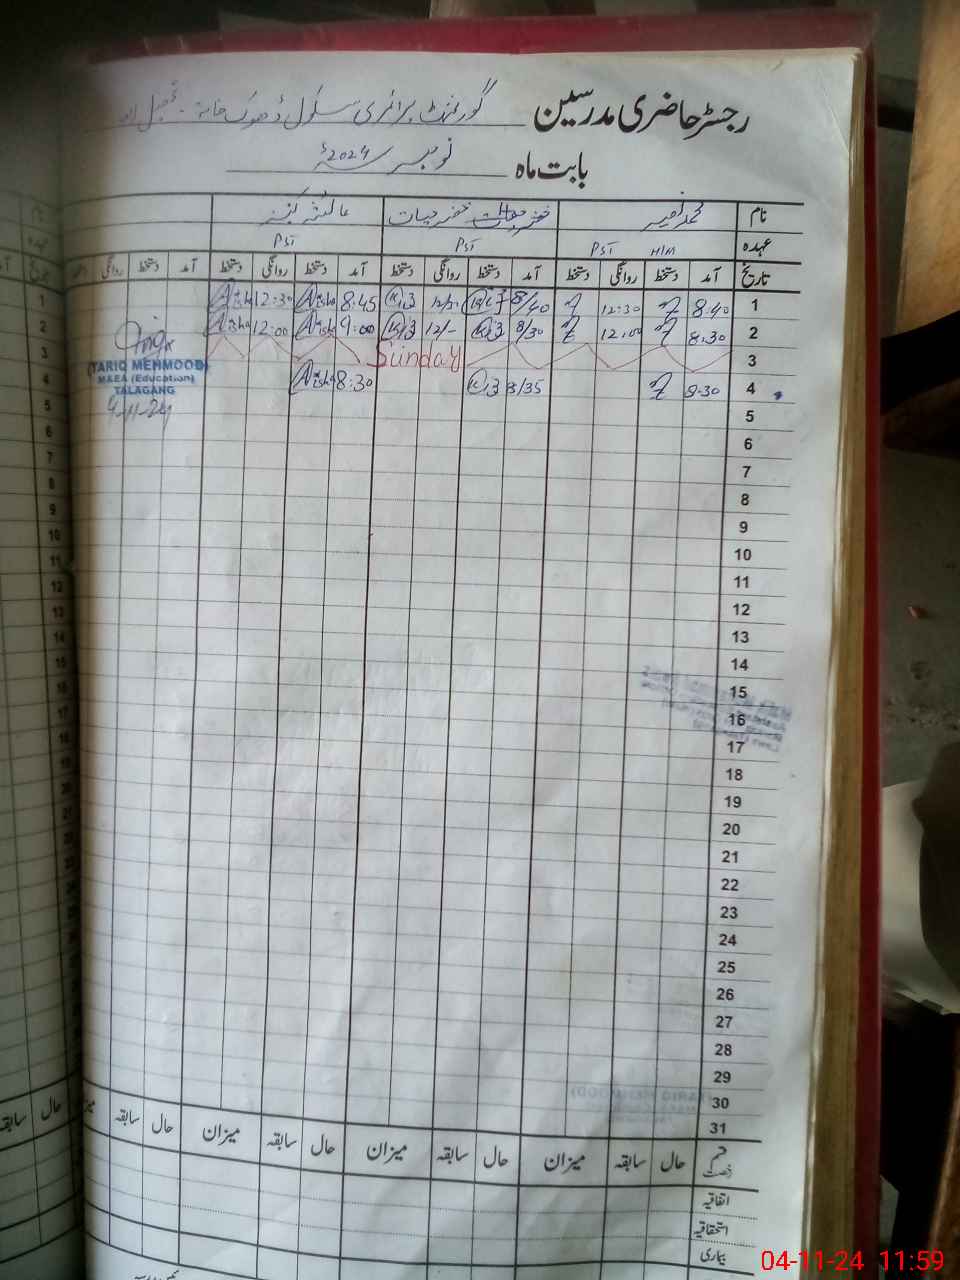 رجسٹر حاضری مدرسین گورنمنٹ پرائمری سکول ڈھوک
بابت ماہ نومبر 2024ء
نام محمد خضر حیات عائشہ کنیز
عہدہ PST H/M PST PST
تاریخ آمد دستخط روانگی دستخط آمد دستخط روانگی دستخط آمد دستخط روانگی دستخط آمد دستخط روانگی
1 8:40 12:30 8/40 8:45 Aisha 12:30 Aisha
2 8:30 12:00 8/30 12/- 9:00 Aisha 12:00 Aisha
3 Sunday
4 8:30 8/35 8:30 Aisha
(TARIQ MEHMOOD)
MAEA (Education)
TALAGANG
4-11-24
5
6
7
8
9
10
11
12
13
14
15
16
17
18
19
20
21
22
23
24
25
26
27
28
29
30
31
قسم رخصت حال سابقہ میزان حال سابقہ میزان حال سابقہ میزان حال سابقہ
اتفاقیہ
استحقاقیہ
بیماری
04-11-24 11:59